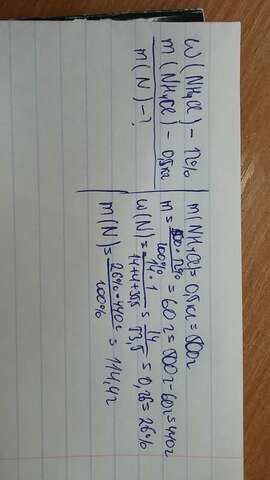 W(NH4Cl) - 12%
m(NH4Cl) - 0,5кг
m(N) - ?
m(NH4Cl) = 0,5кг = 500г
m = 500 · 12% / 100% = 60г = 500г - 60г = 440г
W(N) = 14 · 1 / 14+4+35,5 = 14 / 53,5 = 0,26 = 26%
m(N) = 26% · 440г / 100% = 114,4г